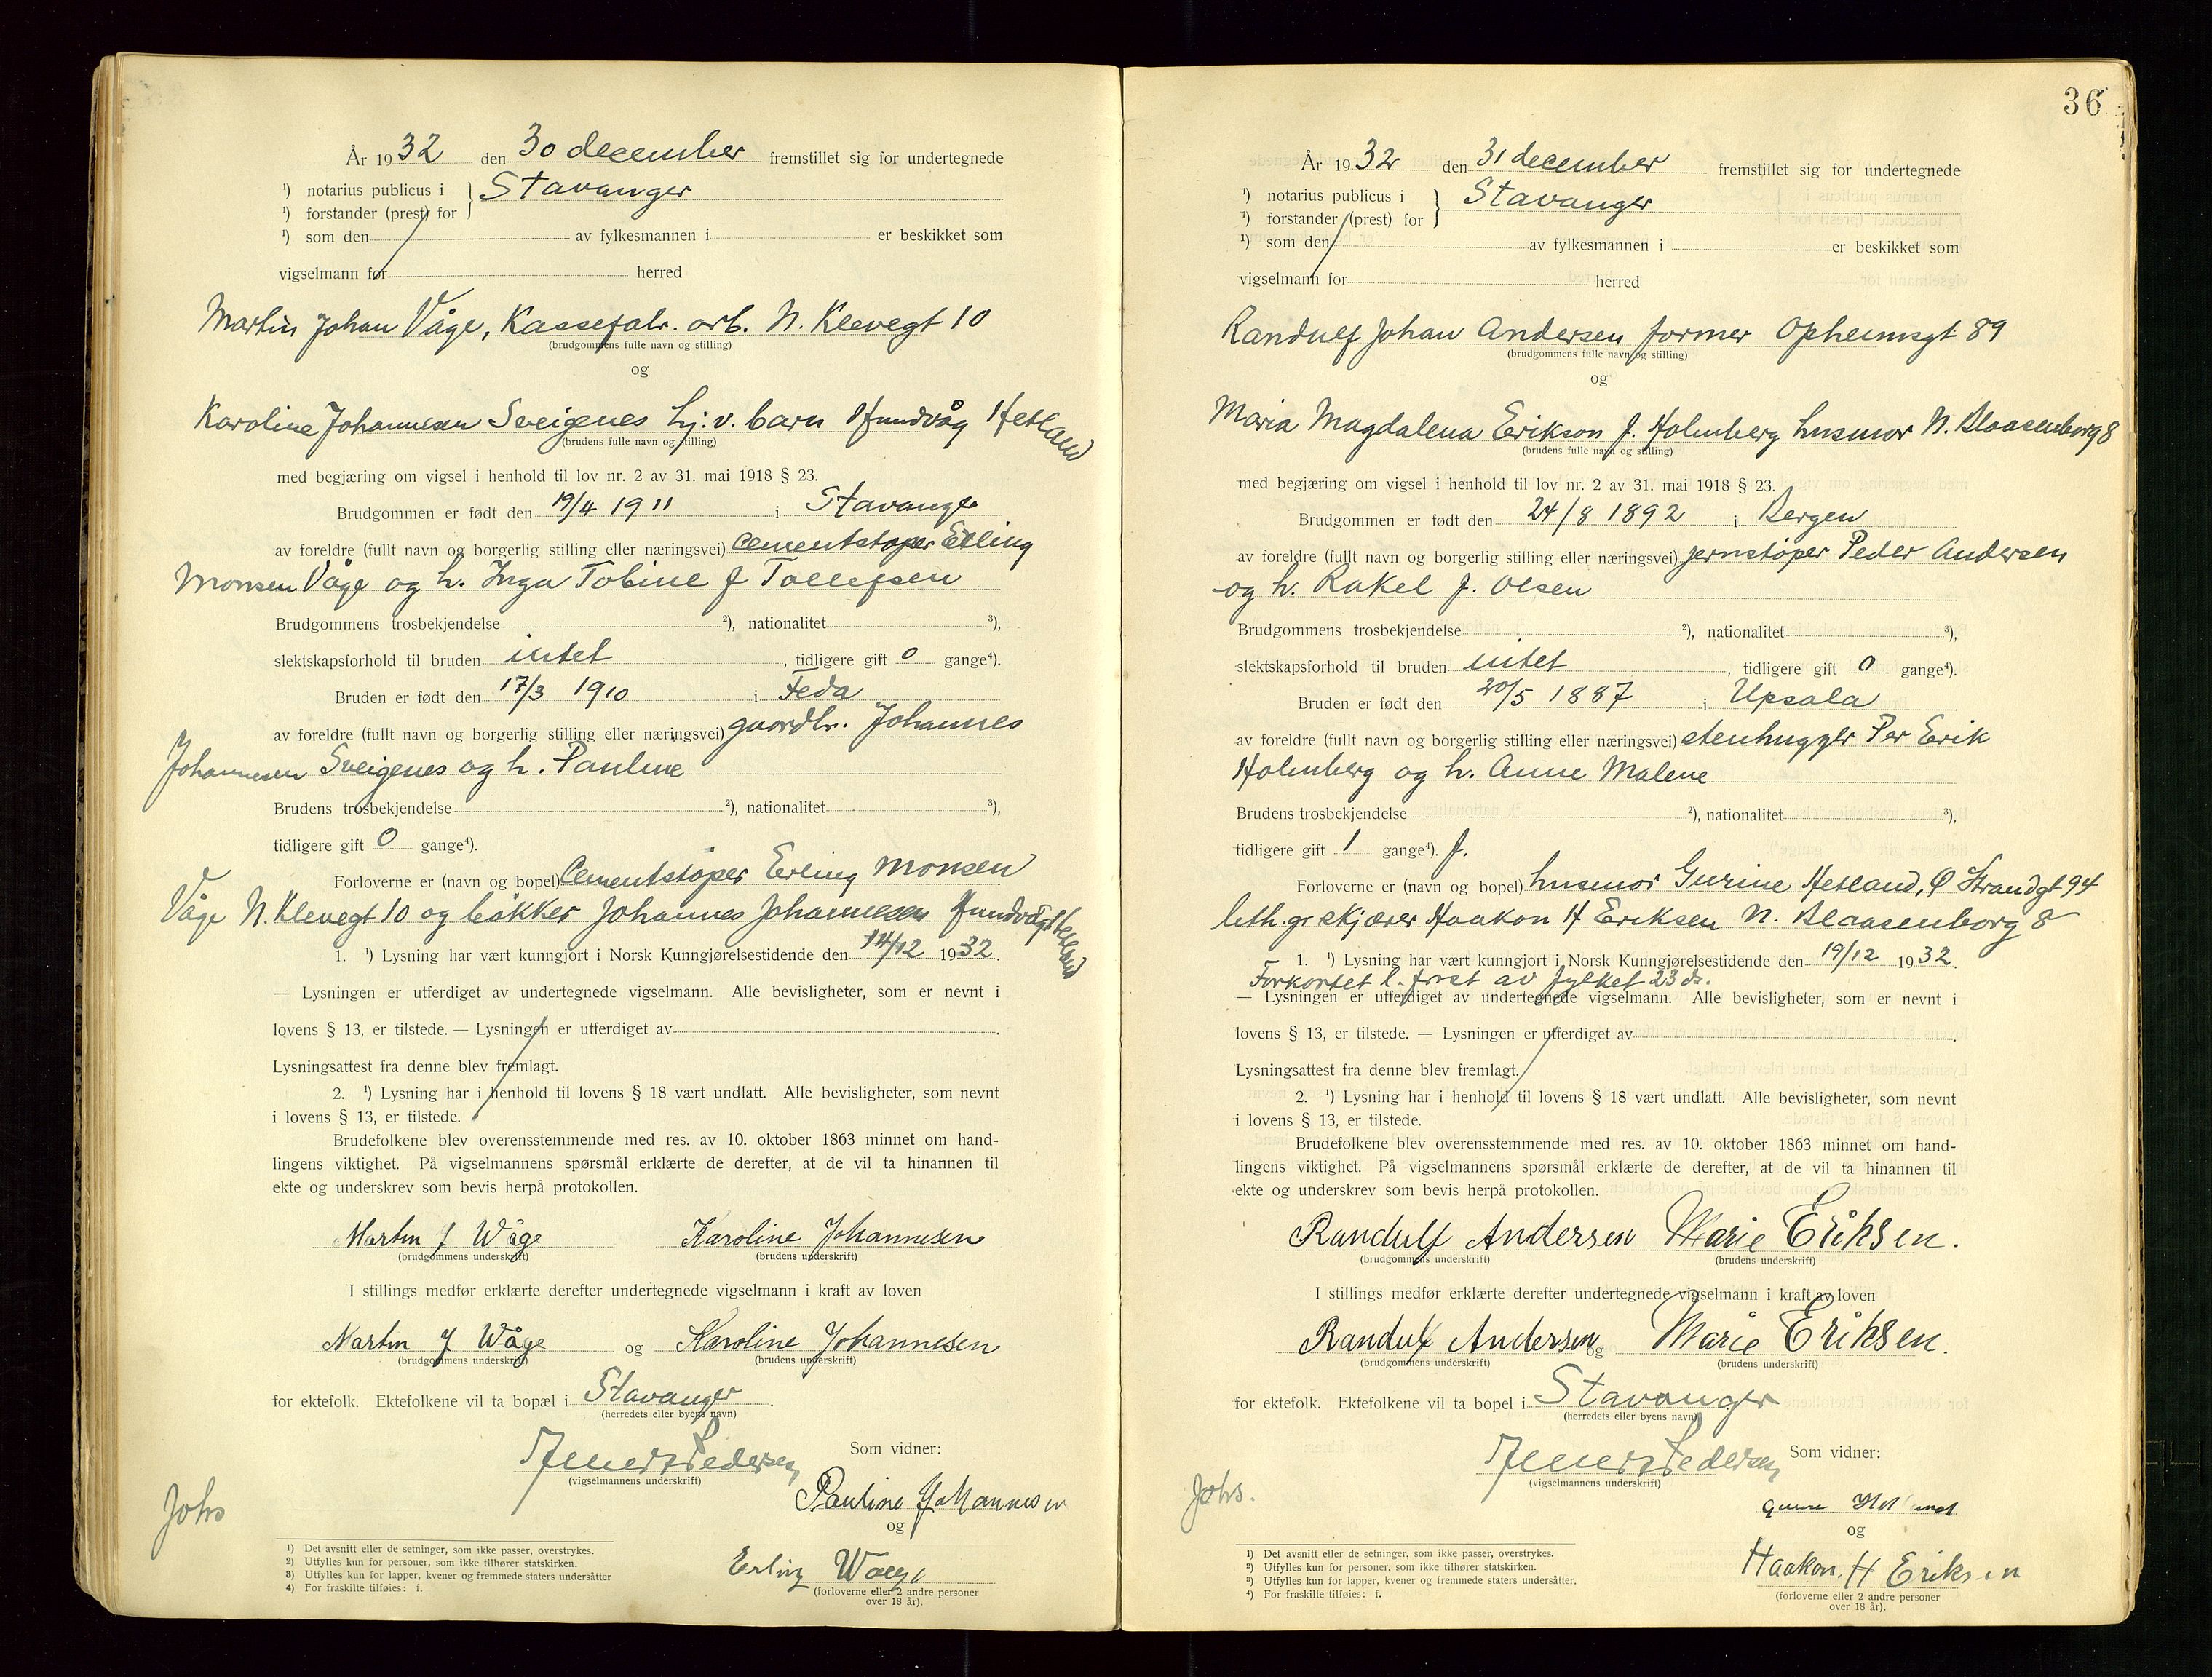 År 1932 den 30 december fremstillet sig for undertegnede
¹) notarius publicus i } Stavanger
¹) forstander (prest) for
¹) som den av fylkesmannen i er beskikket som
vigselmann for herred
Martin Johan Våge, Kassefabr. arb. N. Klevegt 10
(brudgommens fulle navn og stilling)
og
Karoline Johannesen Sveigenes hj. v. barn Hundvåg Hetland
(brudens fulle navn og stilling)
med begjæring om vigsel i henhold til lov nr. 2 av 31. mai 1918 § 23.
Brudgommen er født den 19/4 1911 i Stavanger
av foreldre (fullt navn og borgerlig stilling eller næringsvei) Cementstøper Erling
Monsen Våge og h. Inga Tobine f Tollefsen
Brudgommens trosbekjendelse ²), nationalitet ³),
slektskapsforhold til bruden intet, tidligere gift 0 gange⁴).
Bruden er født den 17/3 1910 i Feda
av foreldre (fullt navn og borgerlig stilling eller næringsvei) gaardbr. Johannes
Johannesen Sveigenes og h. Pauline
Brudens trosbekjendelse ²), nationalitet ³),
tidligere gift 0 gange⁴).
Forloverne er (navn og bopel) Cementstøper Erling Monsen
Våge N. Klevegt 10 og bøkker Johannes Johannesen Hundvåg Hetland
1. ¹) Lysning har vært kunngjort i Norsk Kunngjørelsestidende den 14/12 1932.
— Lysningen er utferdiget av undertegnede vigselmann. Alle bevisligheter, som er nevnt i
lovens § 13, er tilstede. — Lysningen er utferdiget av .
Lysningsattest fra denne blev fremlagt.
2. ¹) Lysning har i henhold til lovens § 18 vært undlatt. Alle bevisligheter, som nevnt
i lovens § 13, er tilstede.
Brudefolkene blev overensstemmende med res. av 10. oktober 1863 minnet om hand-
lingens viktighet. På vigselmannens spørsmål erklærte de derefter, at de vil ta hinannen til
ekte og underskrev som bevis herpå protokollen.
Martin J Wåge Karoline Johannesen
(brudgommens underskrift) (brudens underskrift)
I stillings medfør erklærte derefter undertegnede vigselmann i kraft av loven
Martin J Wåge og Karoline Johannesen
(brudgommens underskrift) (brudens underskrift)
for ektefolk. Ektefolkene vil ta bopæl i Stavanger.
(herredets eller byens navn)
Pedersen Som vidner:
(vigselmannens underskrift)
Pauline Johannesen
Johs
og
Erling Waage
(forloverne eller 2 andre personer
over 18 år).
1) Det avsnitt eller de setninger, som ikke passer, overstrykes.
2) Utfylles kun for personer, som ikke tilhører statskirken.
3) Utfylles kun for lapper, kvener og fremmede staters undersåtter
4) For fraskilte tilføies: f.
36
År 1932 den 31 december fremstillet sig for undertegnede
¹) notarius publicus i } Stavanger
¹) forstander (prest) for
¹) som den av fylkesmannen i er beskikket som
vigselmann for herred
Randulf Johan Andersen former Opheimsgt 89
(brudgommens fulle navn og stilling)
og
Maria Magdalena Erikson f. Holmberg husmor N. Blaasenborg 8
(brudens fulle navn og stilling)
med begjæring om vigsel i henhold til lov nr. 2 av 31. mai 1918 § 23.
Brudgommen er født den 24/8 1892 i Bergen
av foreldre (fullt navn og borgerlig stilling eller næringsvei) jernstøper Peder Andersen
og h. Rakel f. Olsen
Brudgommens trosbekjendelse ²), nationalitet ³),
slektskapsforhold til bruden intet, tidligere gift 0 gange⁴).
Bruden er født den 20/5 1887 i Upsala
av foreldre (fullt navn og borgerlig stilling eller næringsvei) stenhugger Per Erik
Holmberg og h. Anne Malene
Brudens trosbekjendelse ²), nationalitet ³),
tidligere gift 1 gange⁴). f.
Forloverne er (navn og bopel) husmor Gurine Hetland, Ø Strandgt 94
lith. gr skjærer Haakon H Eriksen N. Blaasenborg 8
1. ¹) Lysning har vært kunngjort i Norsk Kunngjørelsestidende den 19/12 1932.
Forkortet l. frist av fylket 23 ds.
— Lysningen er utferdiget av undertegnede vigselmann. Alle bevisligheter, som er nevnt i
lovens § 13, er tilstede. — Lysningen er utferdiget av .
Lysningsattest fra denne blev fremlagt.
2. ¹) Lysning har i henhold til lovens § 18 vært undlatt. Alle bevisligheter, som nevnt
i lovens § 13, er tilstede.
Brudefolkene blev overensstemmende med res. av 10. oktober 1863 minnet om hand-
lingens viktighet. På vigselmannens spørsmål erklærte de derefter, at de vil ta hinannen til
ekte og underskrev som bevis herpå protokollen.
Randulf Andersen Marie Eriksen.
(brudgommens underskrift) (brudens underskrift)
I stillings medfør erklærte derefter undertegnede vigselmann i kraft av loven
Randulf Andersen og Marie Eriksen.
(brudgommens underskrift) (brudens underskrift)
for ektefolk. Ektefolkene vil ta bopel i Stavanger
(herredets eller byens navn)
Pedersen Som vidner:
(vigselmannens underskrift)
Johs.
og
Haakon. H Eriksen
(forloverne eller 2 andre personer
over 18 år).
1) Det avsnitt eller de setninger, som ikke passer, overstrykes.
2) Utfylles kun for personer, som ikke tilhører statskirken.
3) Utfylles kun for lapper, kvener og fremmede staters undersåtter.
4) For fraskilte tilføies: f.